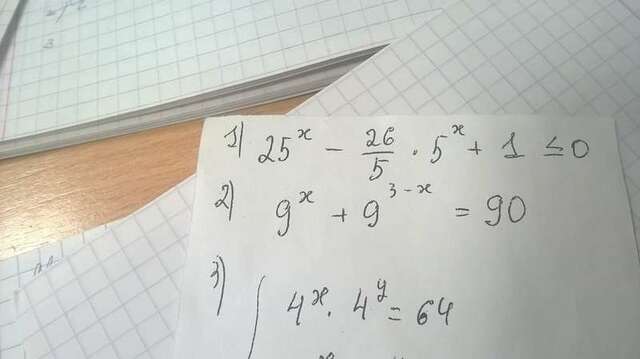 1) 25^x - 26/5 · 5^x + 1 ≤ 0
2) 9^x + 9^{3-x} = 90
3) { 4^x · 4^y = 64